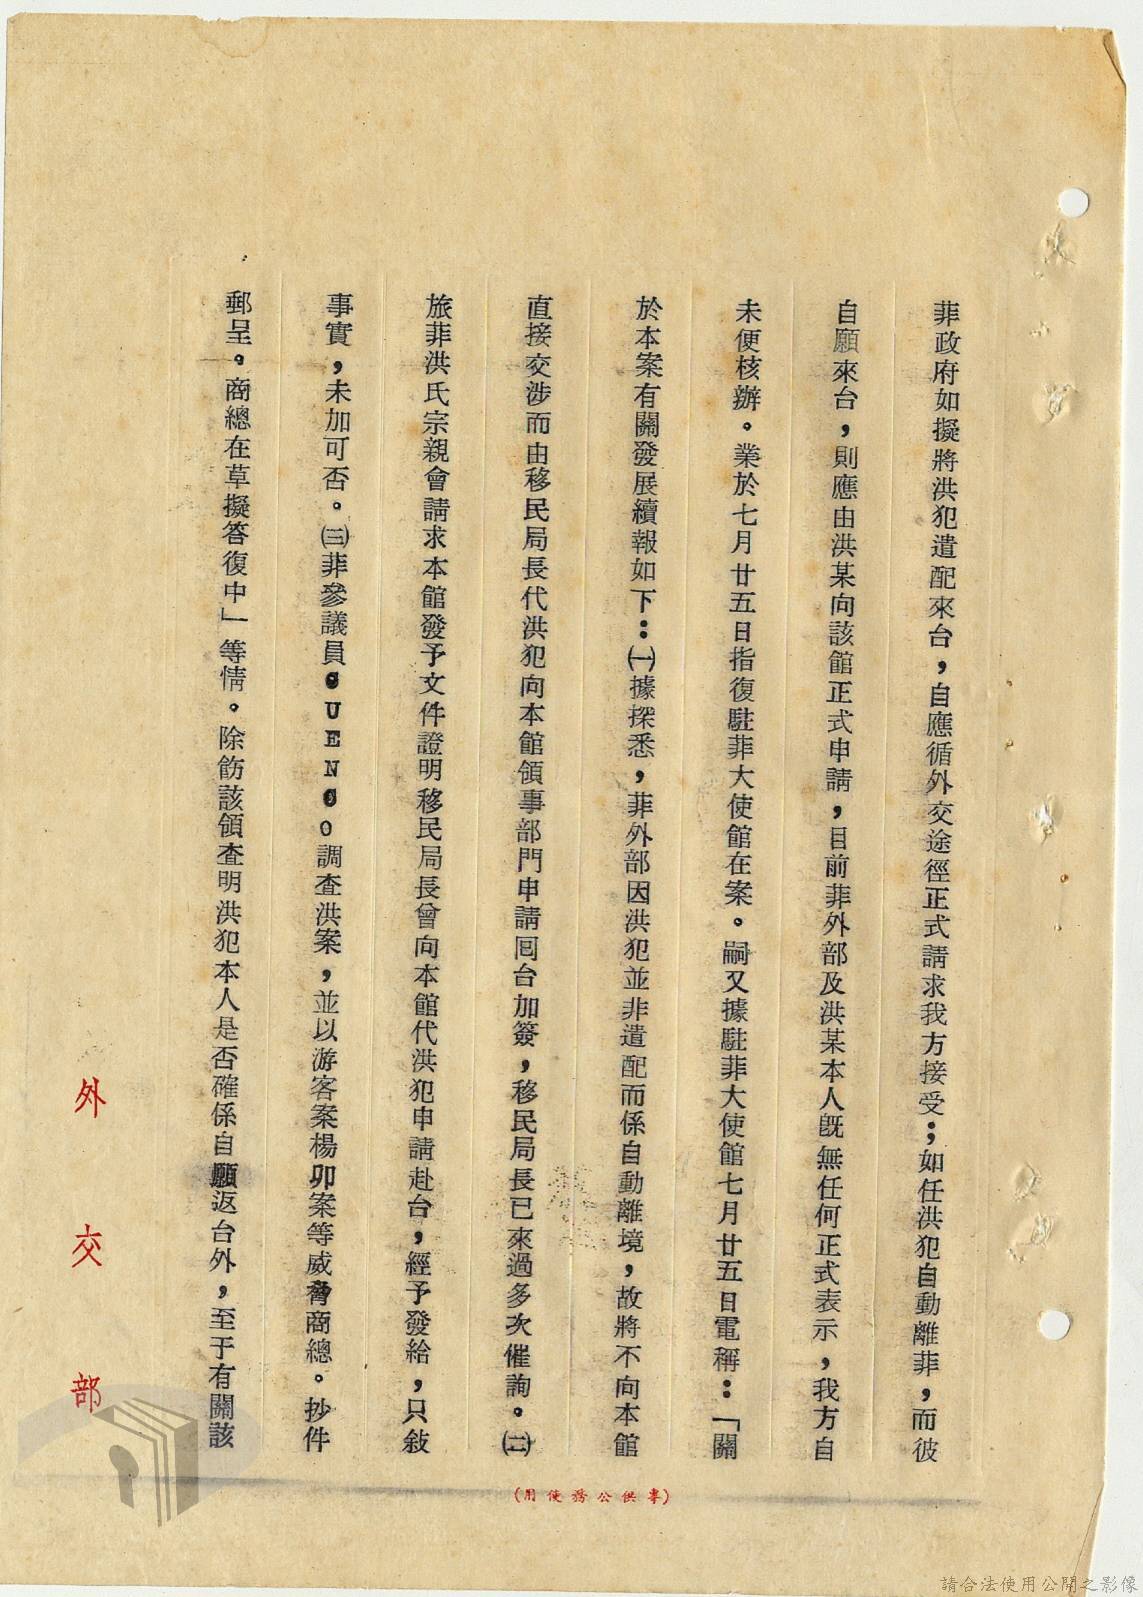 菲政府如擬將洪犯遣配來台，自應循外交途徑正式請求我方接受；如任洪犯自動離菲，而彼
自願來台，則應由洪某向該館正式申請，目前菲外部及洪某本人既無任何正式表示，我方自
未便核辦。業於七月廿五日指復駐菲大使館在案。嗣又據駐菲大使館七月廿五日電稱：「關
於本案有關發展續報如下：㈠據探悉，菲外部因洪犯並非遣配而係自動離境，故將不向本館
直接交涉而由移民局長代洪犯向本館領事部門申請囘台加簽，移民局長已來過多次催詢。㈡
旅菲洪氏宗親會請求本館發予文件證明移民局長曾向本館代洪犯申請赴台，經予發給，只敍
事實，未加可否。㈢菲參議員CUENCO調查洪案，並以游客案楊卯案等威脅商總。抄件
郵呈。商總在草擬答復中」等情。除飭該領查明洪犯本人是否確係自願返台外，至于有關該
外交部
(專供公務使用)
請合法使用公開之影像